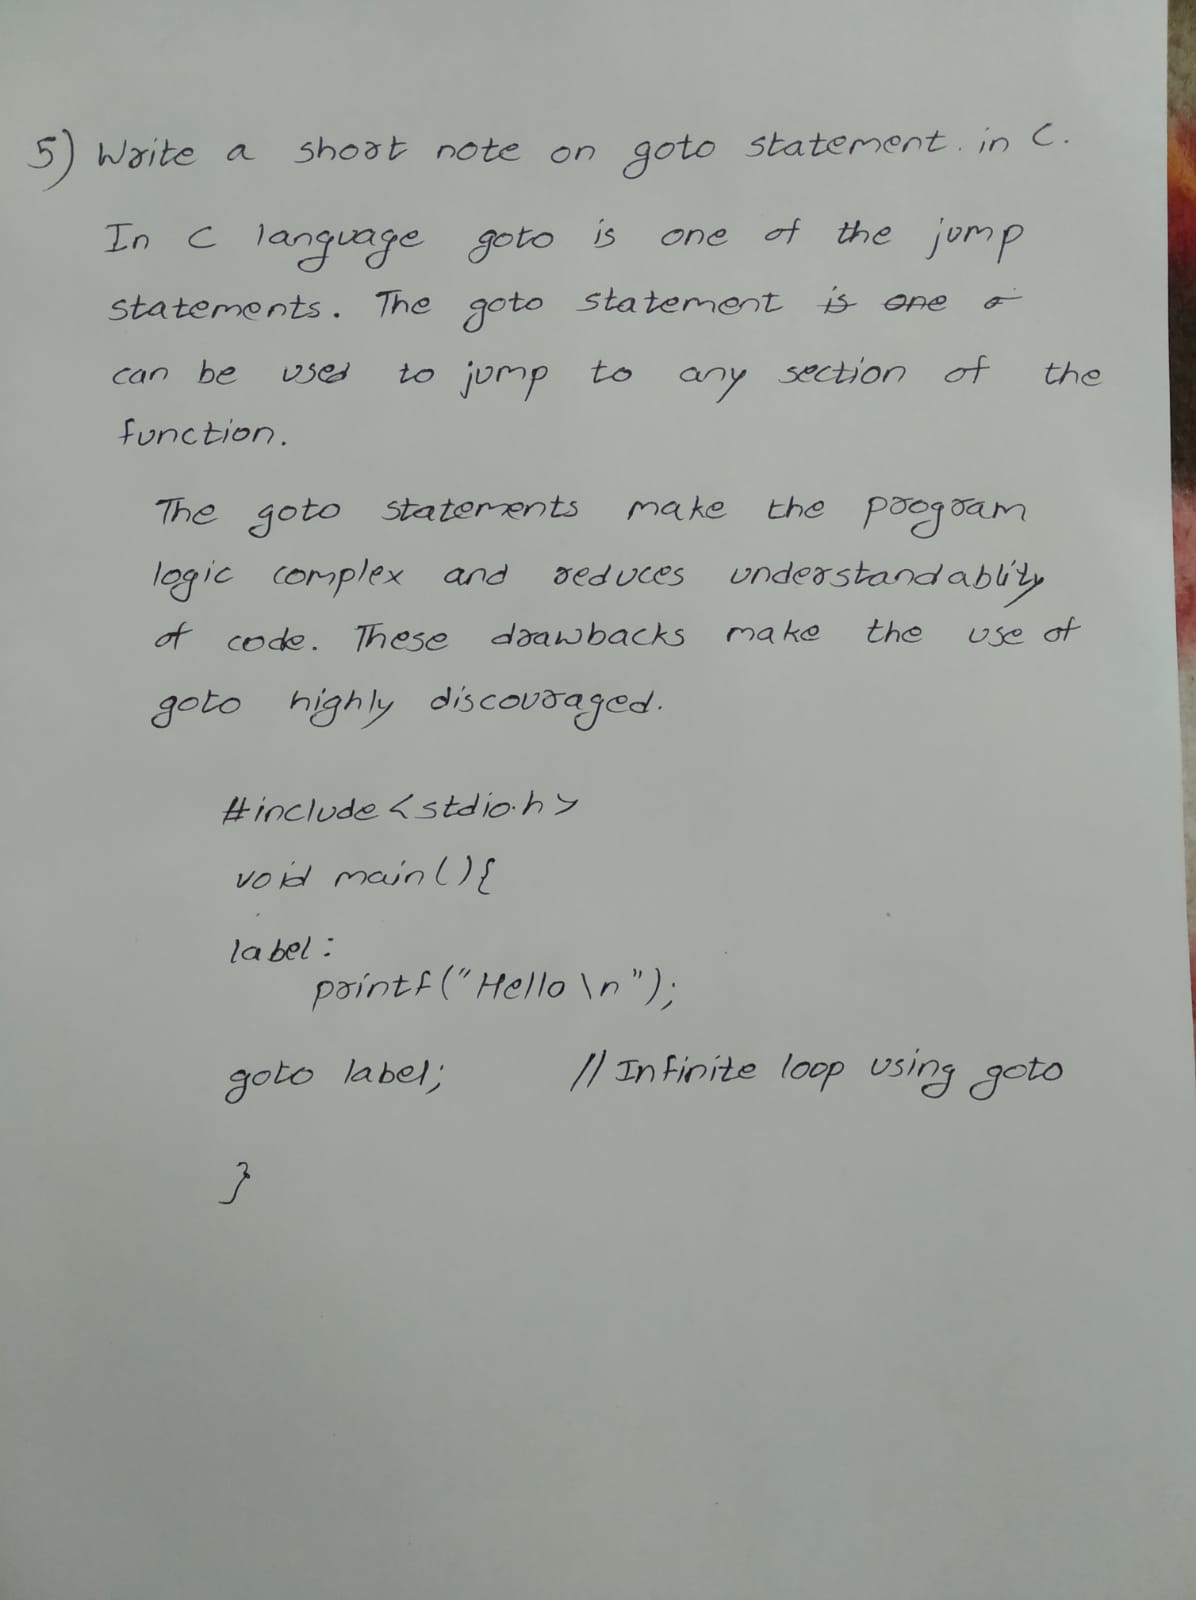 5) Write a short note on goto statement. in C.
In C language goto is one of the jump
statements. The goto statement is one o
can be used to jump to any section of the
function.
The goto statements make the program
logic complex and reduces understandablity
of code. These drawbacks make the use of
goto highly discouraged.
#include <stdio.h>
void main(){
label:
printf("Hello \n");
goto label; // Infinite loop using goto
}